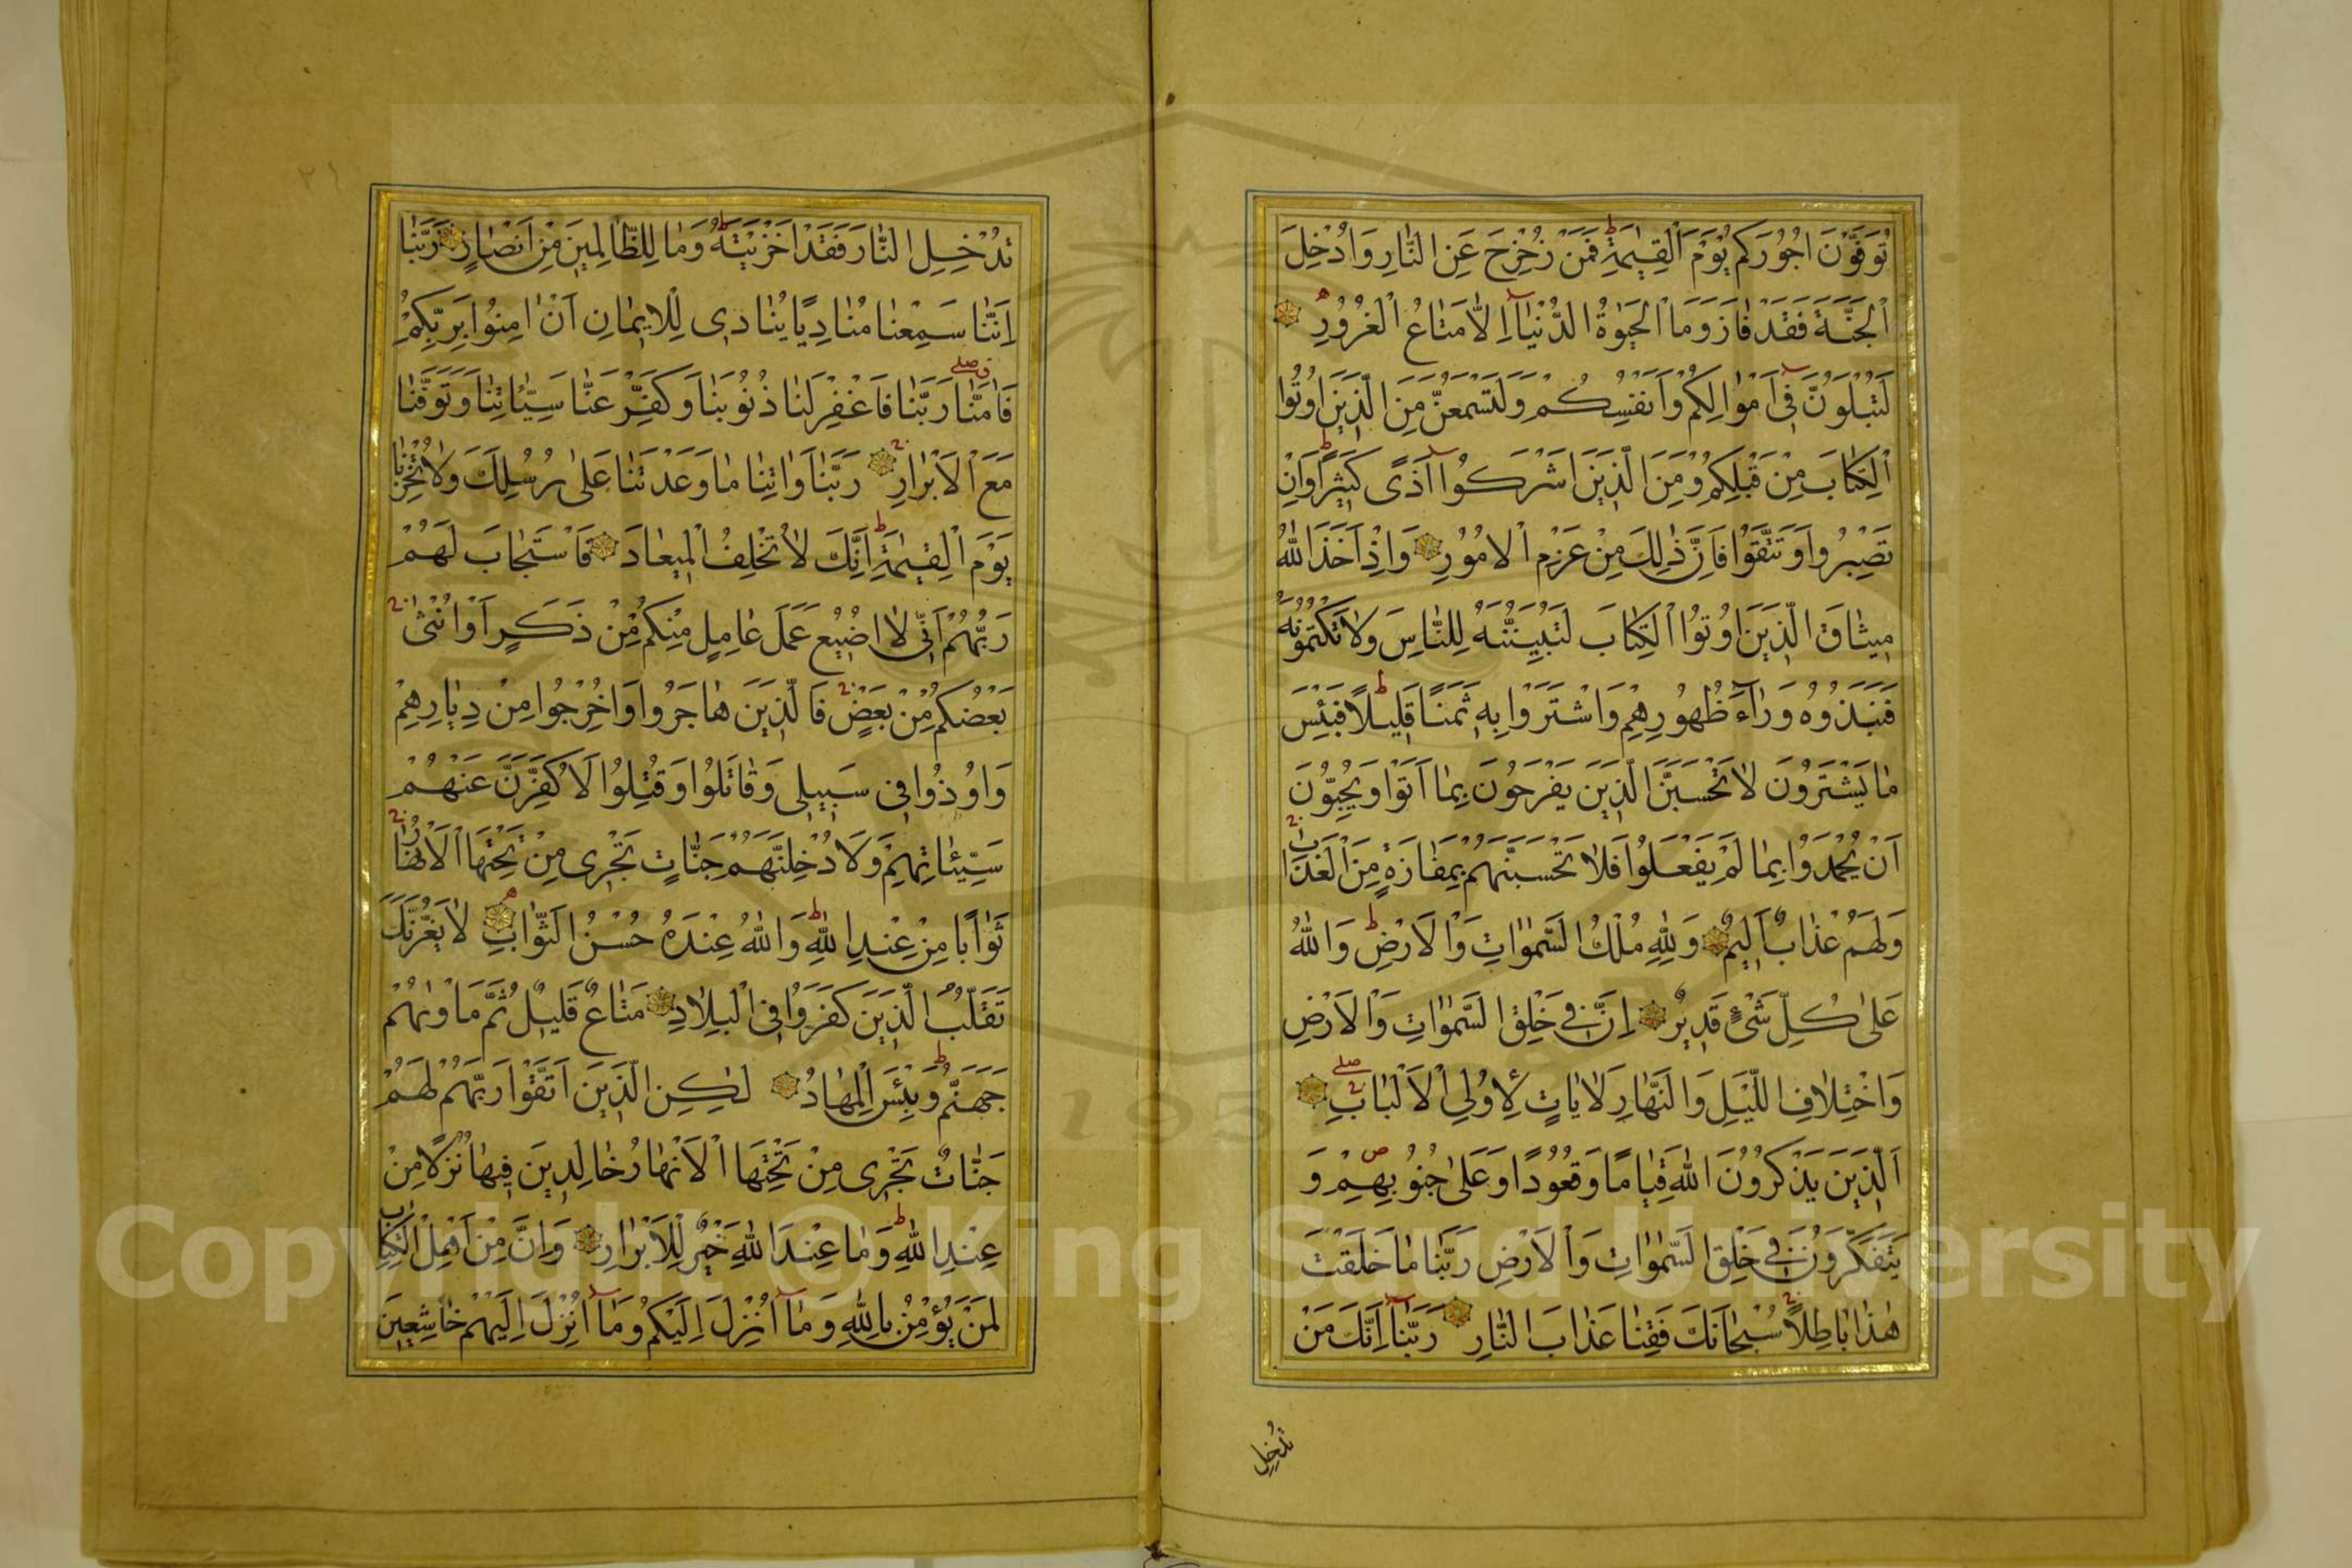 تُوَفَّوْنَ اُجُورَكُمْ يَوْمَ الْقِيٰمَةِ فَمَنْ زُحْزِحَ عَنِ النَّارِ وَاُدْخِلَ
الْجَنَّةَ فَقَدْ فَازَ وَمَا الْحَيٰوةُ الدُّنْيَآ اِلَّا مَتَاعُ الْغُرُورِ
لَتُبْلَوُنَّ فِٓى اَمْوَالِكُمْ وَاَنْفُسِكُمْ وَلَتَسْمَعُنَّ مِنَ الَّذِينَ اُوتُوا
الْكِتَابَ مِنْ قَبْلِكُمْ وَمِنَ الَّذِينَ اَشْرَكُوٓا اَذًى كَثِيرًا وَاِنْ
تَصْبِرُوا وَتَتَّقُوا فَاِنَّ ذٰلِكَ مِنْ عَزْمِ الْاُمُورِ وَاِذْ اَخَذَ اللّٰهُ
مِيثَاقَ الَّذِينَ اُوتُوا الْكِتَابَ لَتُبَيِّنُنَّهُ لِلنَّاسِ وَلَا تَكْتُمُونَهُ
فَنَبَذُوهُ وَرَآءَ ظُهُورِهِمْ وَاشْتَرَوْا بِهِ ثَمَنًا قَلِيلًا فَبِئْسَ
مَا يَشْتَرُونَ لَا تَحْسَبَنَّ الَّذِينَ يَفْرَحُونَ بِمَا اَتَوْا وَيُحِبُّونَ
اَنْ يُحْمَدُوا بِمَا لَمْ يَفْعَلُوا فَلَا تَحْسَبَنَّهُمْ بِمَفَازَةٍ مِنَ الْعَذَابِ
وَلَهُمْ عَذَابٌ اَلِيمٌ وَلِلّٰهِ مُلْكُ السَّمٰوَاتِ وَالْاَرْضِ وَاللّٰهُ
عَلٰى كُلِّ شَىْءٍ قَدِيرٌ اِنَّ فِى خَلْقِ السَّمٰوَاتِ وَالْاَرْضِ
وَاخْتِلَافِ اللَّيْلِ وَالنَّهَارِ لَاٰيَاتٍ لِاُولِى الْاَلْبَابِ
اَلَّذِينَ يَذْكُرُونَ اللّٰهَ قِيَامًا وَقُعُودًا وَعَلٰى جُنُوبِهِمْ وَ
يَتَفَكَّرُونَ فِى خَلْقِ السَّمٰوَاتِ وَالْاَرْضِ رَبَّنَا مَا خَلَقْتَ
هٰذَا بَاطِلًا سُبْحَانَكَ فَقِنَا عَذَابَ النَّارِ رَبَّنَآ اِنَّكَ مَنْ
تُدْخِلِ
٢٦
تُدْخِلِ النَّارَ فَقَدْ اَخْزَيْتَهُ وَمَا لِلظَّالِمِينَ مِنْ اَنْصَارٍ رَبَّنَا
اِنَّنَا سَمِعْنَا مُنَادِيًا يُنَادِى لِلْاِيمَانِ اَنْ اٰمِنُوا بِرَبِّكُمْ
فَاٰمَنَّا رَبَّنَا فَاغْفِرْ لَنَا ذُنُوبَنَا وَكَفِّرْ عَنَّا سَيِّئَاتِنَا وَتَوَفَّنَا
مَعَ الْاَبْرَارِ رَبَّنَا وَاٰتِنَا مَا وَعَدْتَنَا عَلٰى رُسُلِكَ وَلَا تُخْزِنَا
يَوْمَ الْقِيٰمَةِ اِنَّكَ لَا تُخْلِفُ الْمِيعَادَ فَاسْتَجَابَ لَهُمْ
رَبُّهُمْ اَنِّى لَا اُضِيعُ عَمَلَ عَامِلٍ مِنْكُمْ مِنْ ذَكَرٍ اَوْ اُنْثٰى
بَعْضُكُمْ مِنْ بَعْضٍ فَالَّذِينَ هَاجَرُوا وَاُخْرِجُوا مِنْ دِيَارِهِمْ
وَاُوذُوا فِى سَبِيلِى وَقَاتَلُوا وَقُتِلُوا لَاُكَفِّرَنَّ عَنْهُمْ
سَيِّئَاتِهِمْ وَلَاُدْخِلَنَّهُمْ جَنَّاتٍ تَجْرِى مِنْ تَحْتِهَا الْاَنْهَارُ
ثَوَابًا مِنْ عِنْدِ اللّٰهِ وَاللّٰهُ عِنْدَهُ حُسْنُ الثَّوَابِ لَا يَغُرَّنَّكَ
تَقَلُّبُ الَّذِينَ كَفَرُوا فِى الْبِلَادِ مَتَاعٌ قَلِيلٌ ثُمَّ مَاْوٰيهُمْ
جَهَنَّمُ وَبِئْسَ الْمِهَادُ لٰكِنِ الَّذِينَ اتَّقَوْا رَبَّهُمْ لَهُمْ
جَنَّاتٌ تَجْرِى مِنْ تَحْتِهَا الْاَنْهَارُ خَالِدِينَ فِيهَا نُزُلًا مِنْ
عِنْدِ اللّٰهِ وَمَا عِنْدَ اللّٰهِ خَيْرٌ لِلْاَبْرَارِ وَاِنَّ مِنْ اَهْلِ الْكِتَابِ
لَمَنْ يُؤْمِنُ بِاللّٰهِ وَمَآ اُنْزِلَ اِلَيْكُمْ وَمَآ اُنْزِلَ اِلَيْهِمْ خَاشِعِينَ
Copyright © King Saud University
195